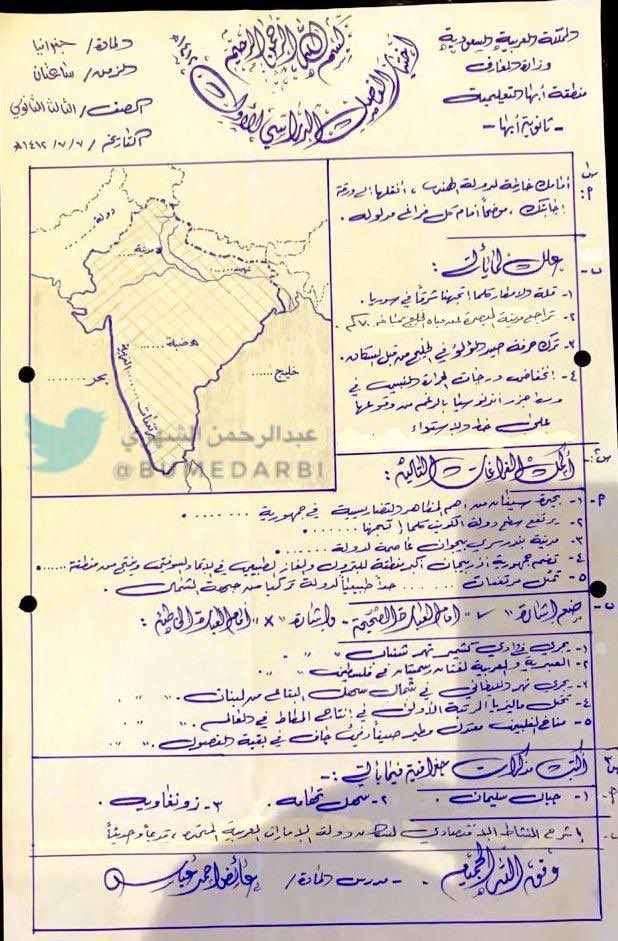 المملكة العربية السعودية
وزارة المعارف
منطقة أبها التعليمية
- ثانوية أبها -
بسم الله الرحمن الرحيم
اختبار الفصل الدراسي الأول
١٤١٢هـ
المادة / جغرافيا
الزمن / ساعتان
الصف / الثالث الثانوي
التاريخ / ٧ / ٧ / ١٤١٢هـ
س١
أ- أمامك خارطة لدولة الهند، انقلها إلى ورقة
إجابتك، موضحاً أمام كل فراغ مدلوله.
ب- علل لما يأتي :
١- قلة الأمطار كلما اتجهنا شرقاً في سوريا.
٢- تراجع مدينة البصرة عن مياه الخليج بمسافة ٧٠كم.
٣- ترك حرفة صيد اللؤلؤ في الخليج من قبل السكان.
٤- انخفاض درجات الحرارة النسبي في
وسط جزر اندونوسيا بالرغم من وقوعها
على خط الاستواء
دولة ......
مدينة
نهر
هضبة ......
مرتفعات الغربية
بحر ......
خليج ......
عبدالرحمن الشهري
@BOMEDARBI
س٢- أكمل الفراغات التالية :
أ- ١- بحيرة سيفان من أهم المظاهر التضاريسية في جمهورية ........
٢- يرتفع سطح دولة الكويت كلما اتجهنا ........
٣- مدينة بندر سري بيجوان عاصمة لدولة ........
٤- تضم جمهورية أذربيجان أكبر منطقة للبترول والغاز الطبيعي في الاتحاد السوفيتي وينتج من منطقة ......
٥- تمثل مرتفعات ........ حداً طبيعياً لدولة تركيا من جهة الشمال.
ب- ضع إشارة " ✓ " أمام العبارة الصحيحة - وإشارة " × " أمام العبارة الخاطئة :
١- يجري في وادي كشمير نهر شناب " " .
٢- العبرية والعربية لغتان رسميتان في فلسطين " " .
٣- يجري نهر الليطاني في شمال سهل البقاع من لبنان. " " .
٤- تحتل ماليزيا المرتبة الأولى في إنتاج المطاط في العالم. " "
٥- مناخ الفلبين معتدل مطير صيفاً دفيئ جاف في بقية الفصول. " "
س٣ أكتب مذكرات جغرافية فيما يأتي :-
أ- ١- جبال سليمان . ٢- سهل تهامة . ٣- زونغاريه .
ب- إشرح النشاط الاقتصادي لسكان دولة الإمارات العربية المتحدة، قديماً وحديثاً
وفق الله الجميع . - مدرس المادة / عائض احمد عباس